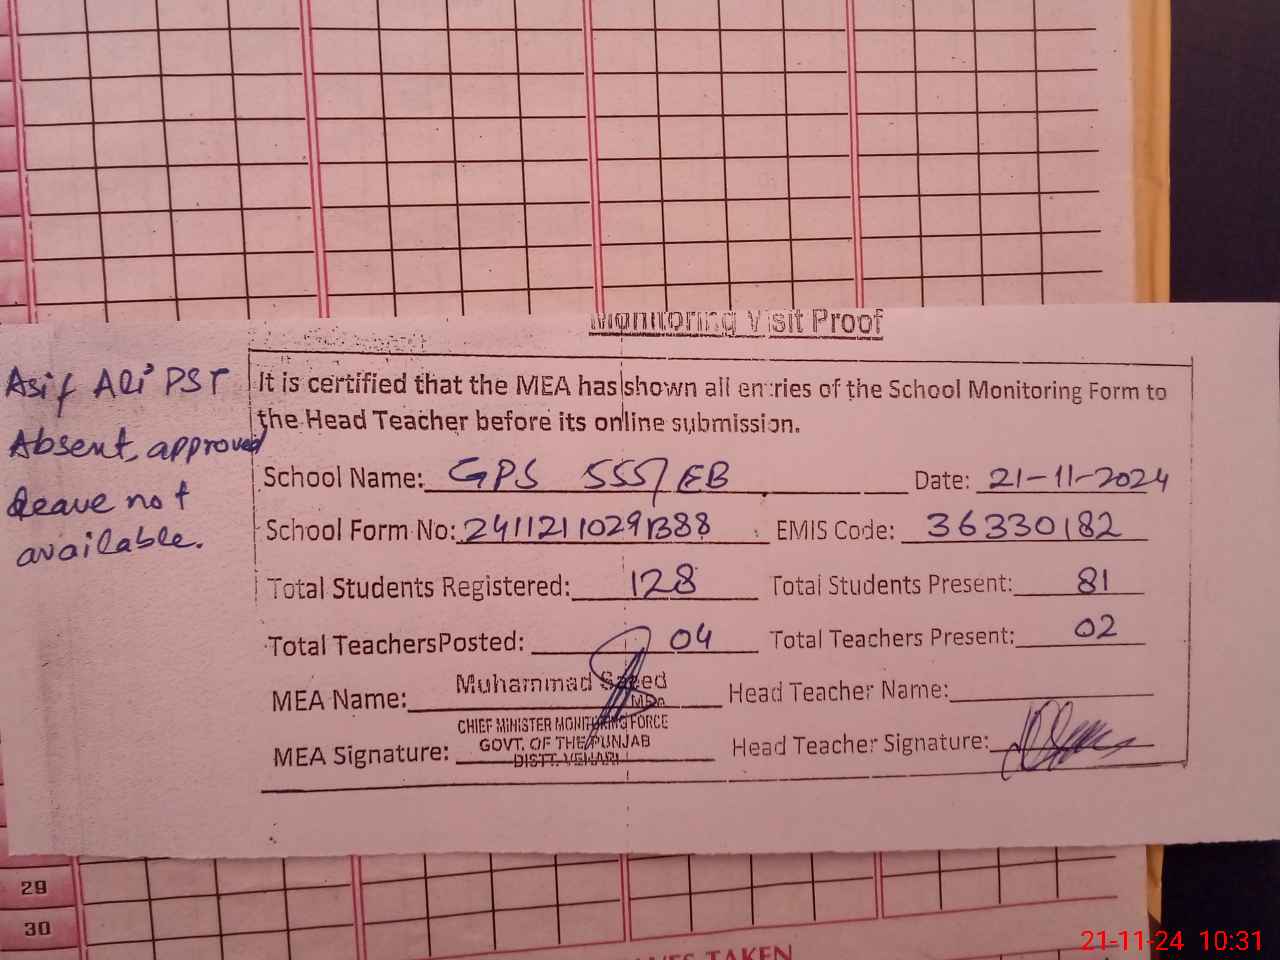 Monitoring Visit Proof
Asif Ali PST
Absent, approved
leave not
available.
It is certified that the MEA has shown all entries of the School Monitoring Form to
the Head Teacher before its online submission.
School Name: GPS 555/EB Date: 21-11-2024
School Form No: 24112110291388 EMIS Code: 36330182
Total Students Registered: 128 Total Students Present: 81
Total TeachersPosted: 04 Total Teachers Present: 02
MEA Name: Muhammad Saeed Head Teacher Name:
MEA
CHIEF MINISTER MONITORING FORCE
GOVT. OF THE PUNJAB
MEA Signature: DISTT. VEHARI Head Teacher Signature:
29
30
TAKEN
21-11-24 10:31